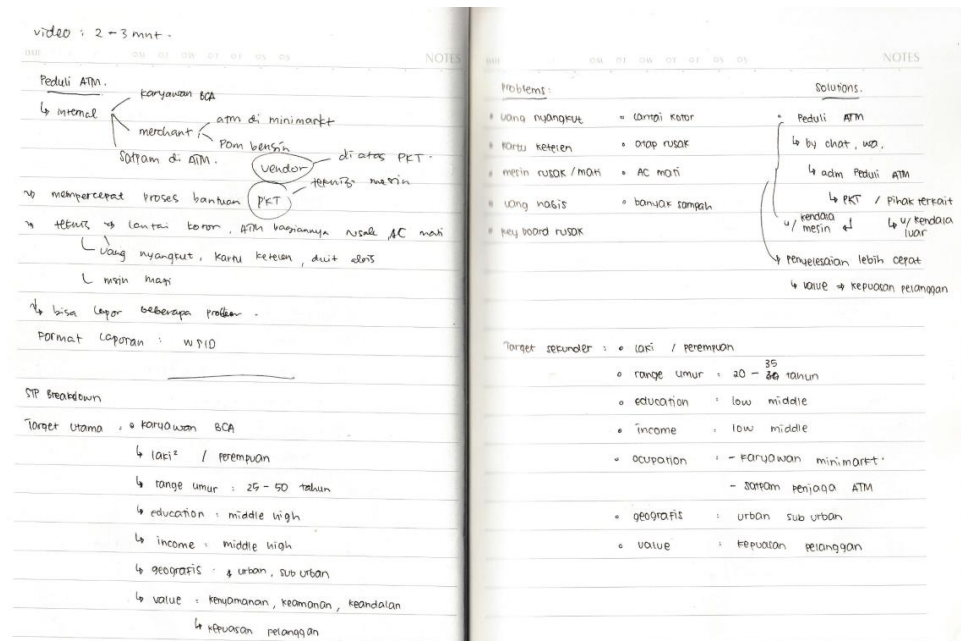 video : 2 - 3 mnt.
NOTES
Peduli ATM.
↳ internal
karyawan BCA
merchant
atm di minimarkt
Pom bensin
Satpam di ATM.
vendor
di atas PKT.
PKT
teknis mesin
mempercepat proses bantuan
teknis → lantai kotor, ATM bagiannya rusak AC mati
↳ Uang nyangkut, kartu ketelen, duit abis
↳ msin mati
↳ bisa lapor beberapa problem.
Format Laporan : WSID
STP Breakdown
Target Utama : • karyawan BCA
↳ laki² / perempuan
↳ range umur : 25 - 50 tahun
↳ education : middle high
↳ income : middle high
↳ geografis : urban, sub urban
↳ value : kenyamanan, keamanan, keandalan
↳ kepuasan pelanggan
NOTES
Problems :
• uang nyangkut
• kartu ketelen
• mesin rusak / mati
• uang habis
• key board rusak
• lantai kotor
• atap rusak
• AC mati
• banyak sampah
Solutions.
• Peduli ATM
↳ by chat, wa.
↳ adm Peduli ATM
↳ PKT / Pihak terkait
u/ kendala mesin
↳ u/ kendala luar
penyelesaian lebih cepat
↳ value → kepuasan pelanggan
Target sekunder : • laki / perempuan
• range umur : 20 - 35 tahun
• education : low middle
• income : low middle
• ocupation : - karyawan minimarkt.
- satpam penjaga ATM
• geografis : urban sub urban
• value : kepuasan pelanggan